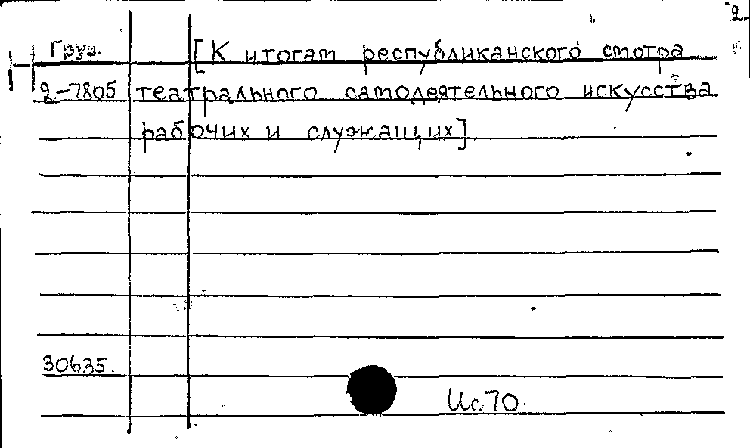 2
Груз. [К итогам республиканского смотра
2-7805 театрального самодеятельного искусства
рабочих и служащих]
30635.
Ис70